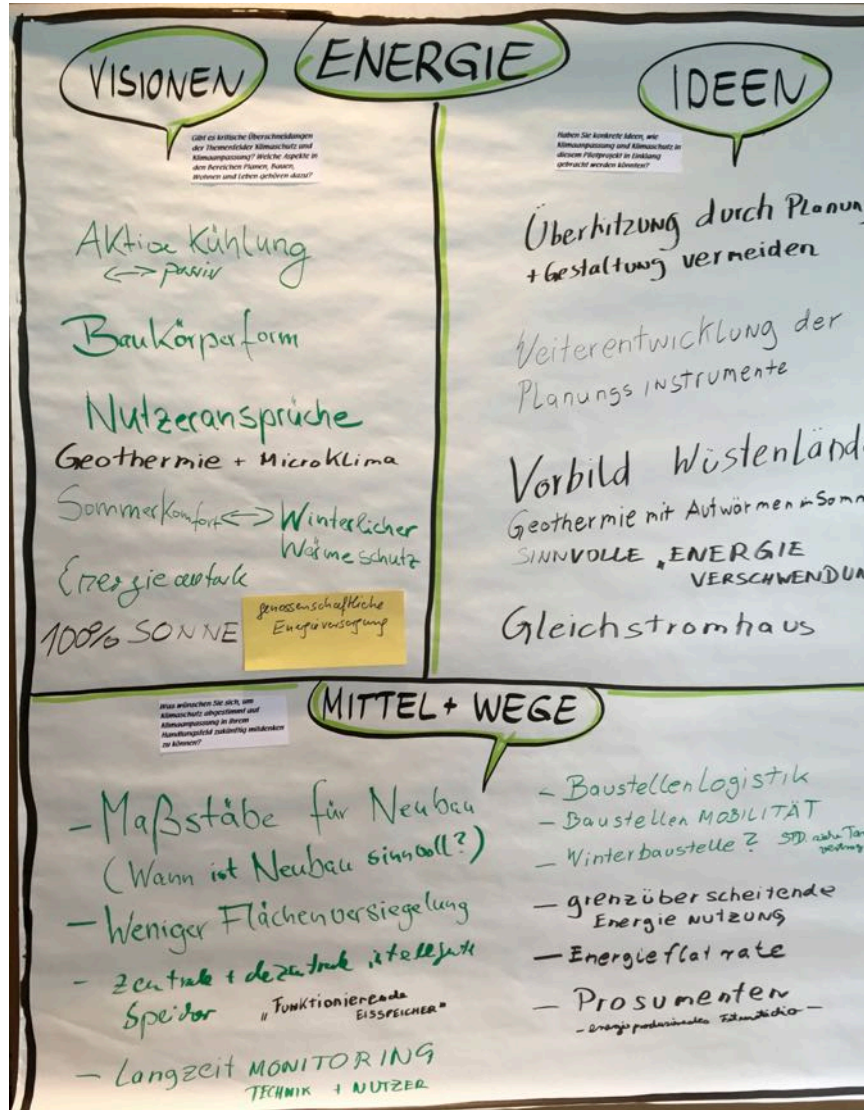 ENERGIE
VISIONEN
Gibt es kritische Überschneidungen
der Themenfelder Klimaschutz und
Klimaanpassung? Welche Aspekte in
den Bereichen Planen, Bauen,
Wohnen und Leben gehören dazu?
Aktive Kühlung
<-> passiv
Baukörperform
Nutzeransprüche
Geothermie + MicroKlima
Sommerkomfort <-> Winterlicher
Wärmeschutz
Energieautark
100% SONNE
genossenschaftliche
Energieversorgung
IDEEN
Haben Sie konkrete Ideen, wie
Klimaanpassung und Klimaschutz in
diesem Pilotprojekt in Einklang
gebracht werden könnten?
Überhitzung durch Planun
+ Gestaltung vermeiden
Weiterentwicklung der
Planungs INSTRUMENTE
Vorbild Wüstenländ
Geothermie mit Aufwärmen in Somm
SINNVOLLE „ENERGIE
VERSCHWENDUN
Gleichstromhaus
MITTEL + WEGE
Was wünschen Sie sich, um
Klimaschutz abgestimmt auf
Klimaanpassung in Ihrem
Handlungsfeld zukünftig mitdenken
zu können?
- Maßstäbe für Neubau
(Wann ist Neubau sinnvoll?)
- Weniger Flächenversiegelung
- Zentrale + dezentrale
Speicher „Funktionierende
EISSPEICHER"
- Langzeit MONITORING
TECHNIK + NUTZER
- Baustellenlogistik
- Baustellen MOBILITÄT
- Winterbaustelle?
- grenzüberscheitende
Energie NUTZUNG
- Energieflatrate
- Prosumenten